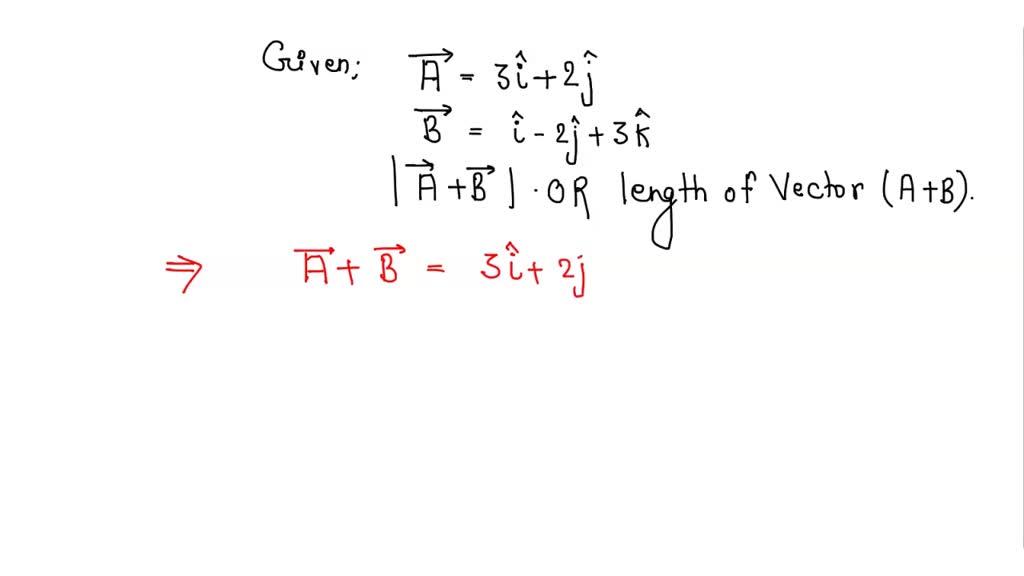 Given; A⃗ = 3î + 2ĵ
B⃗ = î - 2ĵ + 3k̂
|A⃗ + B⃗| · OR length of Vector (A+B).
⇒ A⃗ + B⃗ = 3î + 2j